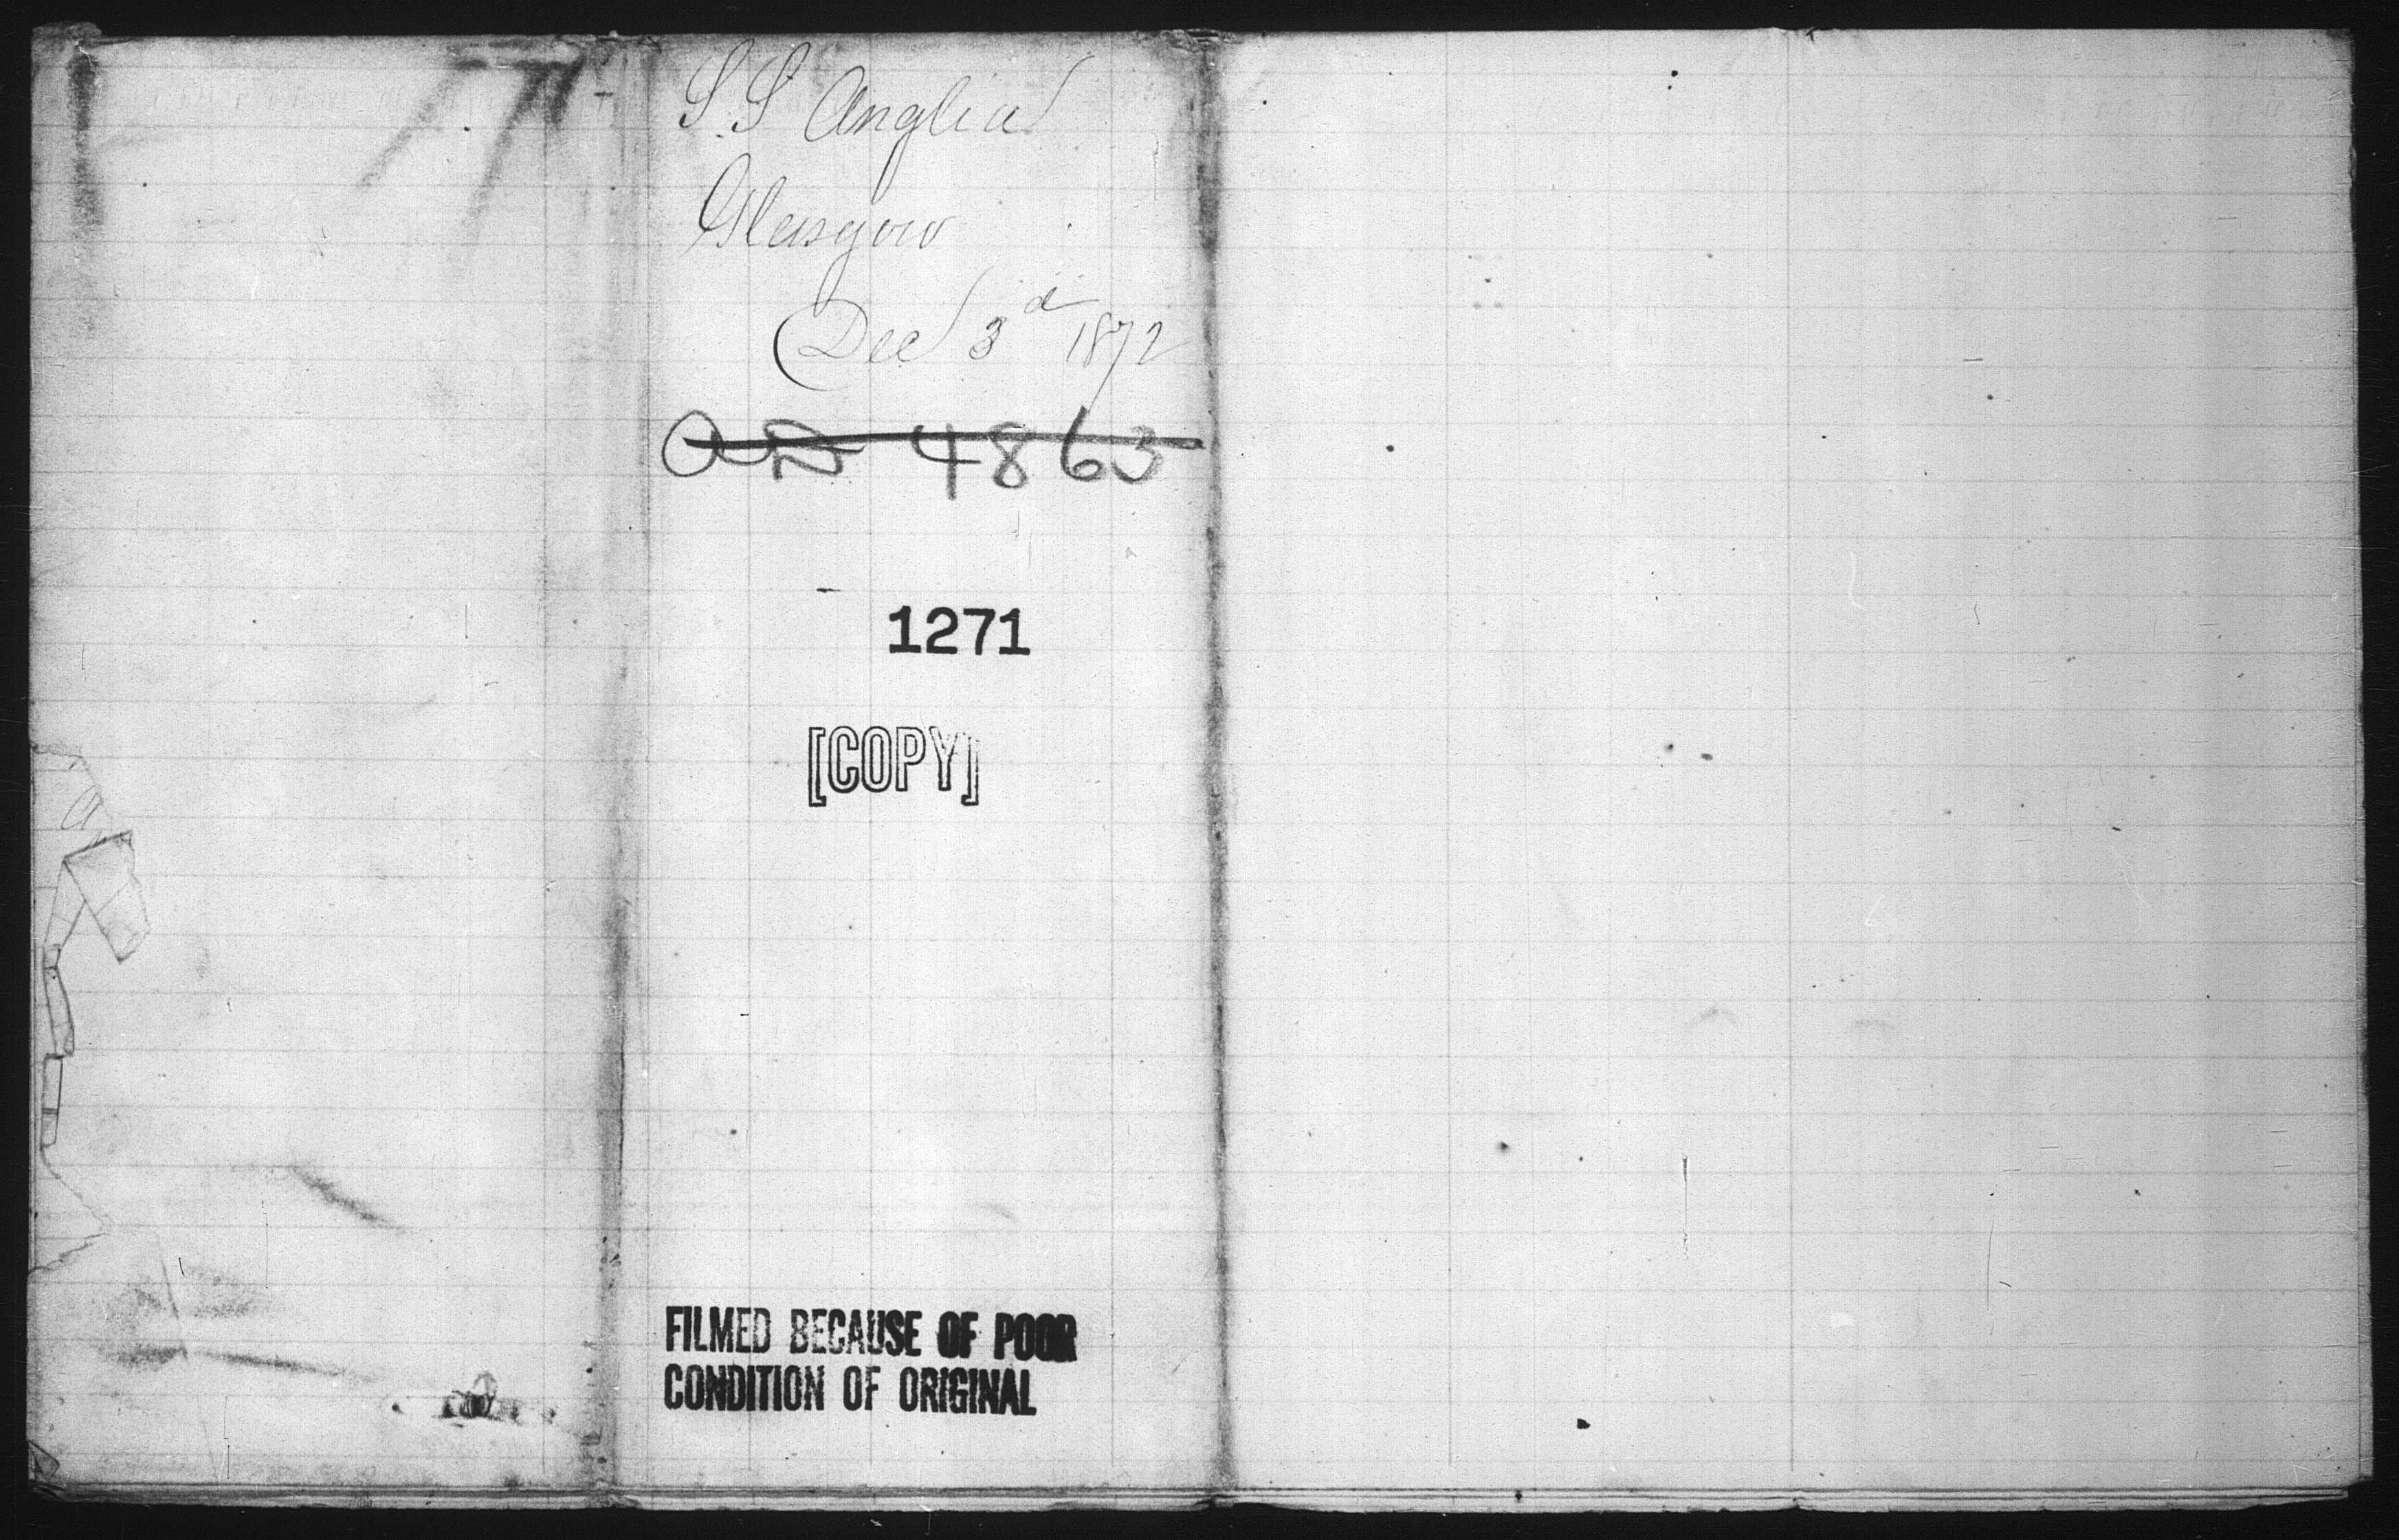 S.S Anglia
Glasgow
Dec 3d 1872
4863
1271
[COPY]
FILMED BECAUSE OF POOR
CONDITION OF ORIGINAL